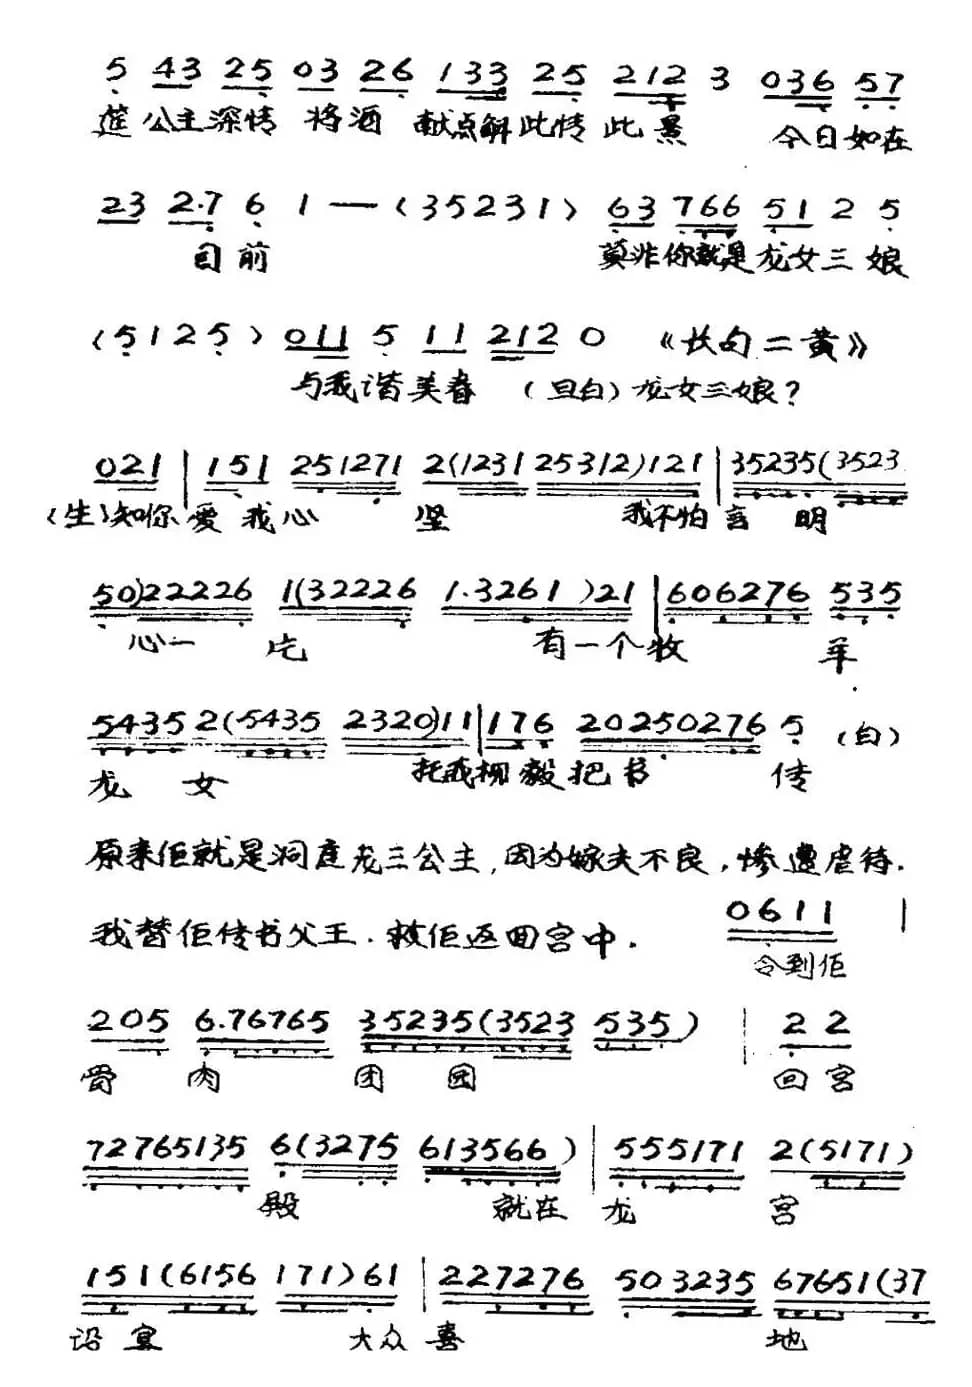 5 43 25 03 26 133 25 212 3 036 57
筵公主深情 将酒 献点解此情此景 今日如在
23 2·7 6 1 — (35231) 63 766 51 2 5
目前 莫非你就是龙女三娘
(5125) 011 5 11 212 0 《长句二黄》
与我谐美眷 (旦白)龙女三娘?
021 | 151 251271 2(1231 25312)121 | 35235(3523
(生)知你爱我心 坚 我不怕言明
50)22226 1(32226 1·3261)21 | 606276 535
心一片 有一个牧 羊
54352(5435 2320)11 | 176 20250276 5 (白)
龙女 托我柳毅把书 传
原来佢就是洞庭龙三公主,因为嫁夫不良,惨遭虐待.
我替佢传书父王.救佢返回宫中. 0611 |
令到佢
205 6·76765 35235(3523 535) | 22
骨肉团圆 回宫
72765135 6(3275 613566) | 555171 2(5171)
殿 就在龙宫
151(6156 171)61 | 227276 503235 67651(37
设宴 大众喜 地